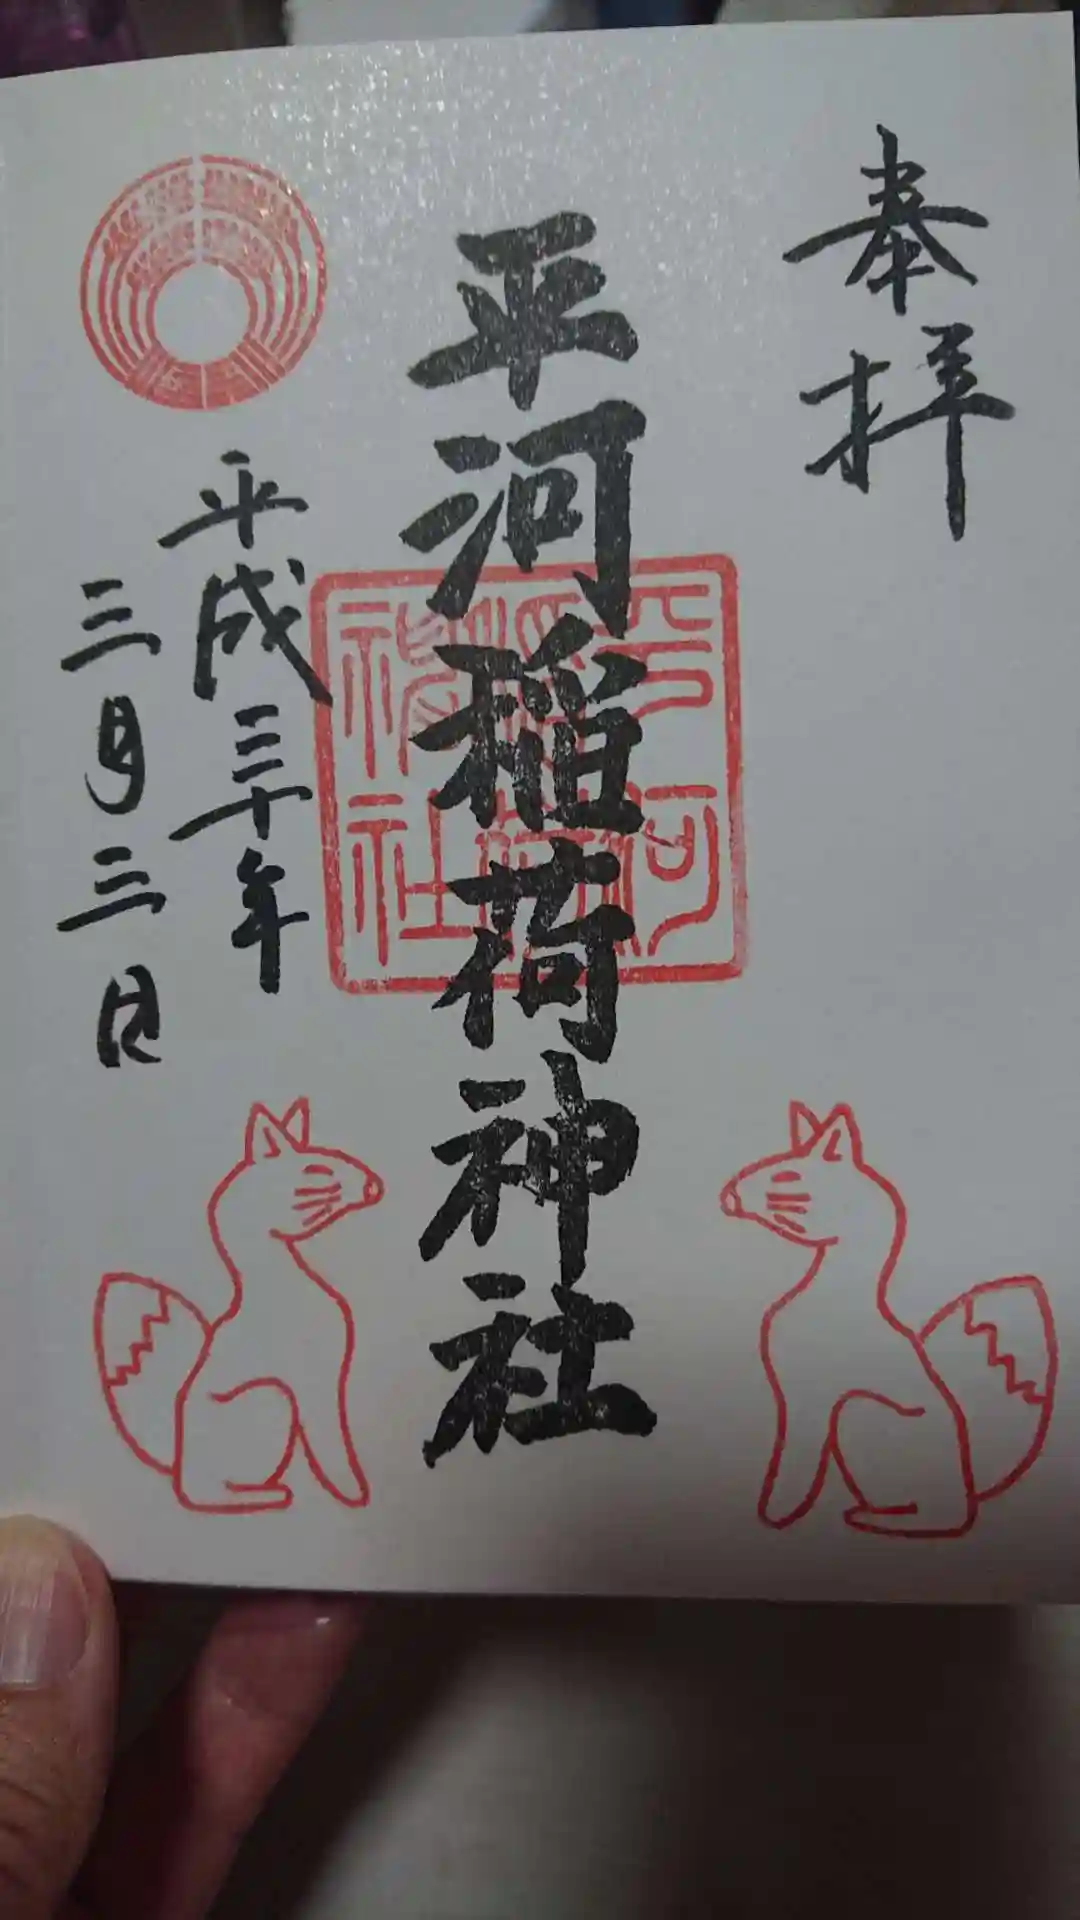 奉拝
平河稲荷神社
平河稲荷神社
平成三十年
三月三日